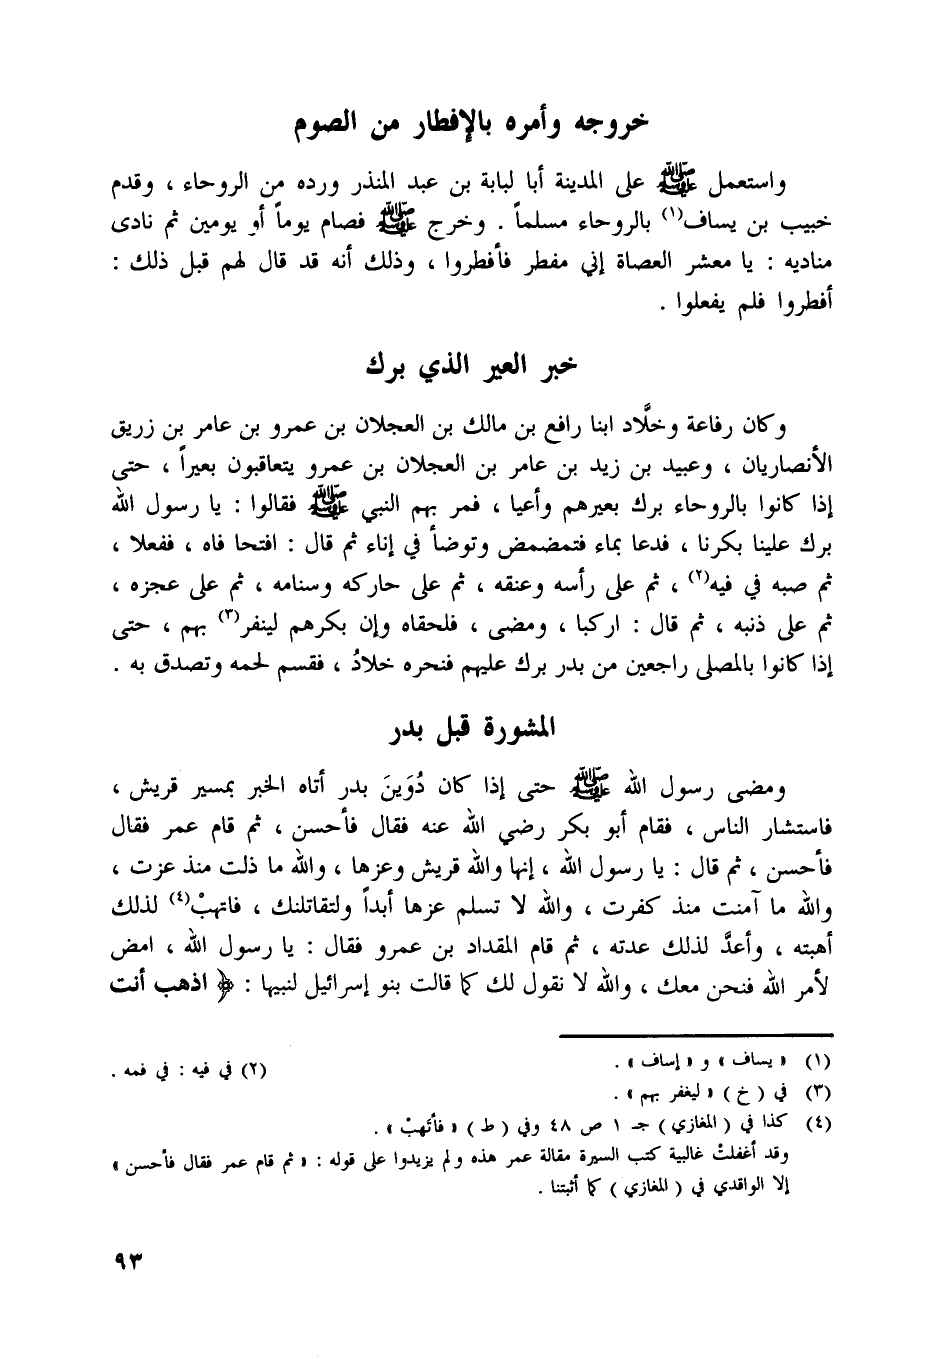 خروجه وأمره بالإفطار من الصوم
واستعمل ﷺ على المدينة أبا لبابة بن عبد المنذر ورده من الروحاء ، وقدم
خبيب بن يساف(١) بالروحاء مسلماً . وخرج ﷺ فصام يوماً أو يومين ثم نادى
مناديه : يا معشر العصاة إني مفطر فأفطروا ، وذلك أنه قد قال لهم قبل ذلك :
أفطروا فلم يفعلوا .
خبر العير الذي برك
وكان رفاعة وخلَّاد ابنا رافع بن مالك بن العجلان بن عمرو بن عامر بن زريق
الأنصاريان ، وعبيد بن زيد بن عامر بن العجلان بن عمرو يتعاقبون بعيراً ، حتى
إذا كانوا بالروحاء برك بعيرهم وأعيا ، فمر بهم النبي ﷺ فقالوا : يا رسول الله
برك علينا بكرنا ، فدعا بماء فتمضمض وتوضأ في إناء ثم قال : افتحا فاه ، ففعلا ،
ثم صبه في فيه(٢) ، ثم على رأسه وعنقه ، ثم على حاركه وسنامه ، ثم على عجزه ،
ثم على ذنبه ، ثم قال : اركبا ، ومضى ، فلحقاه وإن بكرهم لينفر(٣) بهم ، حتى
إذا كانوا بالمصلى راجعين من بدر برك عليهم فنحره خلادُ ، فقسم لحمه وتصدق به .
المشورة قبل بدر
ومضى رسول الله ﷺ حتى إذا كان دُوَينَ بدر أتاه الخبر بمسير قريش ،
فاستشار الناس ، فقام أبو بكر رضي الله عنه فقال فأحسن ، ثم قام عمر فقال
فأحسن ، ثم قال : يا رسول الله ، إنها والله قريش وعزها ، والله ما ذلت منذ عزت ،
والله ما آمنت منذ كفرت ، والله لا تسلم عزها أبداً ولتقاتلنك ، فاتهبْ(٤) لذلك
أهبته ، وأعدَّ لذلك عدته ، ثم قام المقداد بن عمرو فقال : يا رسول الله ، امض
لأمر الله فنحن معك ، والله لا نقول لك كما قالت بنو إسرائيل لنبيها : ﴿ اذهب أنت
(١) « يساف » و « إساف » .
(٢) في فيه : في فمه .
(٣) في ( خ ) « ليغفر بهم » .
(٤) كذا في ( المغازي ) جـ ١ ص ٤٨ وفي ( ط ) « فأتَهبْ » .
وقد أغفلتْ غالبية كتب السيرة مقالة عمر هذه ولم يزيدوا على قوله : « ثم قام عمر فقال فأحسن »
إلا الواقدي في ( المغازي ) كما أثبتنا .
٩٣